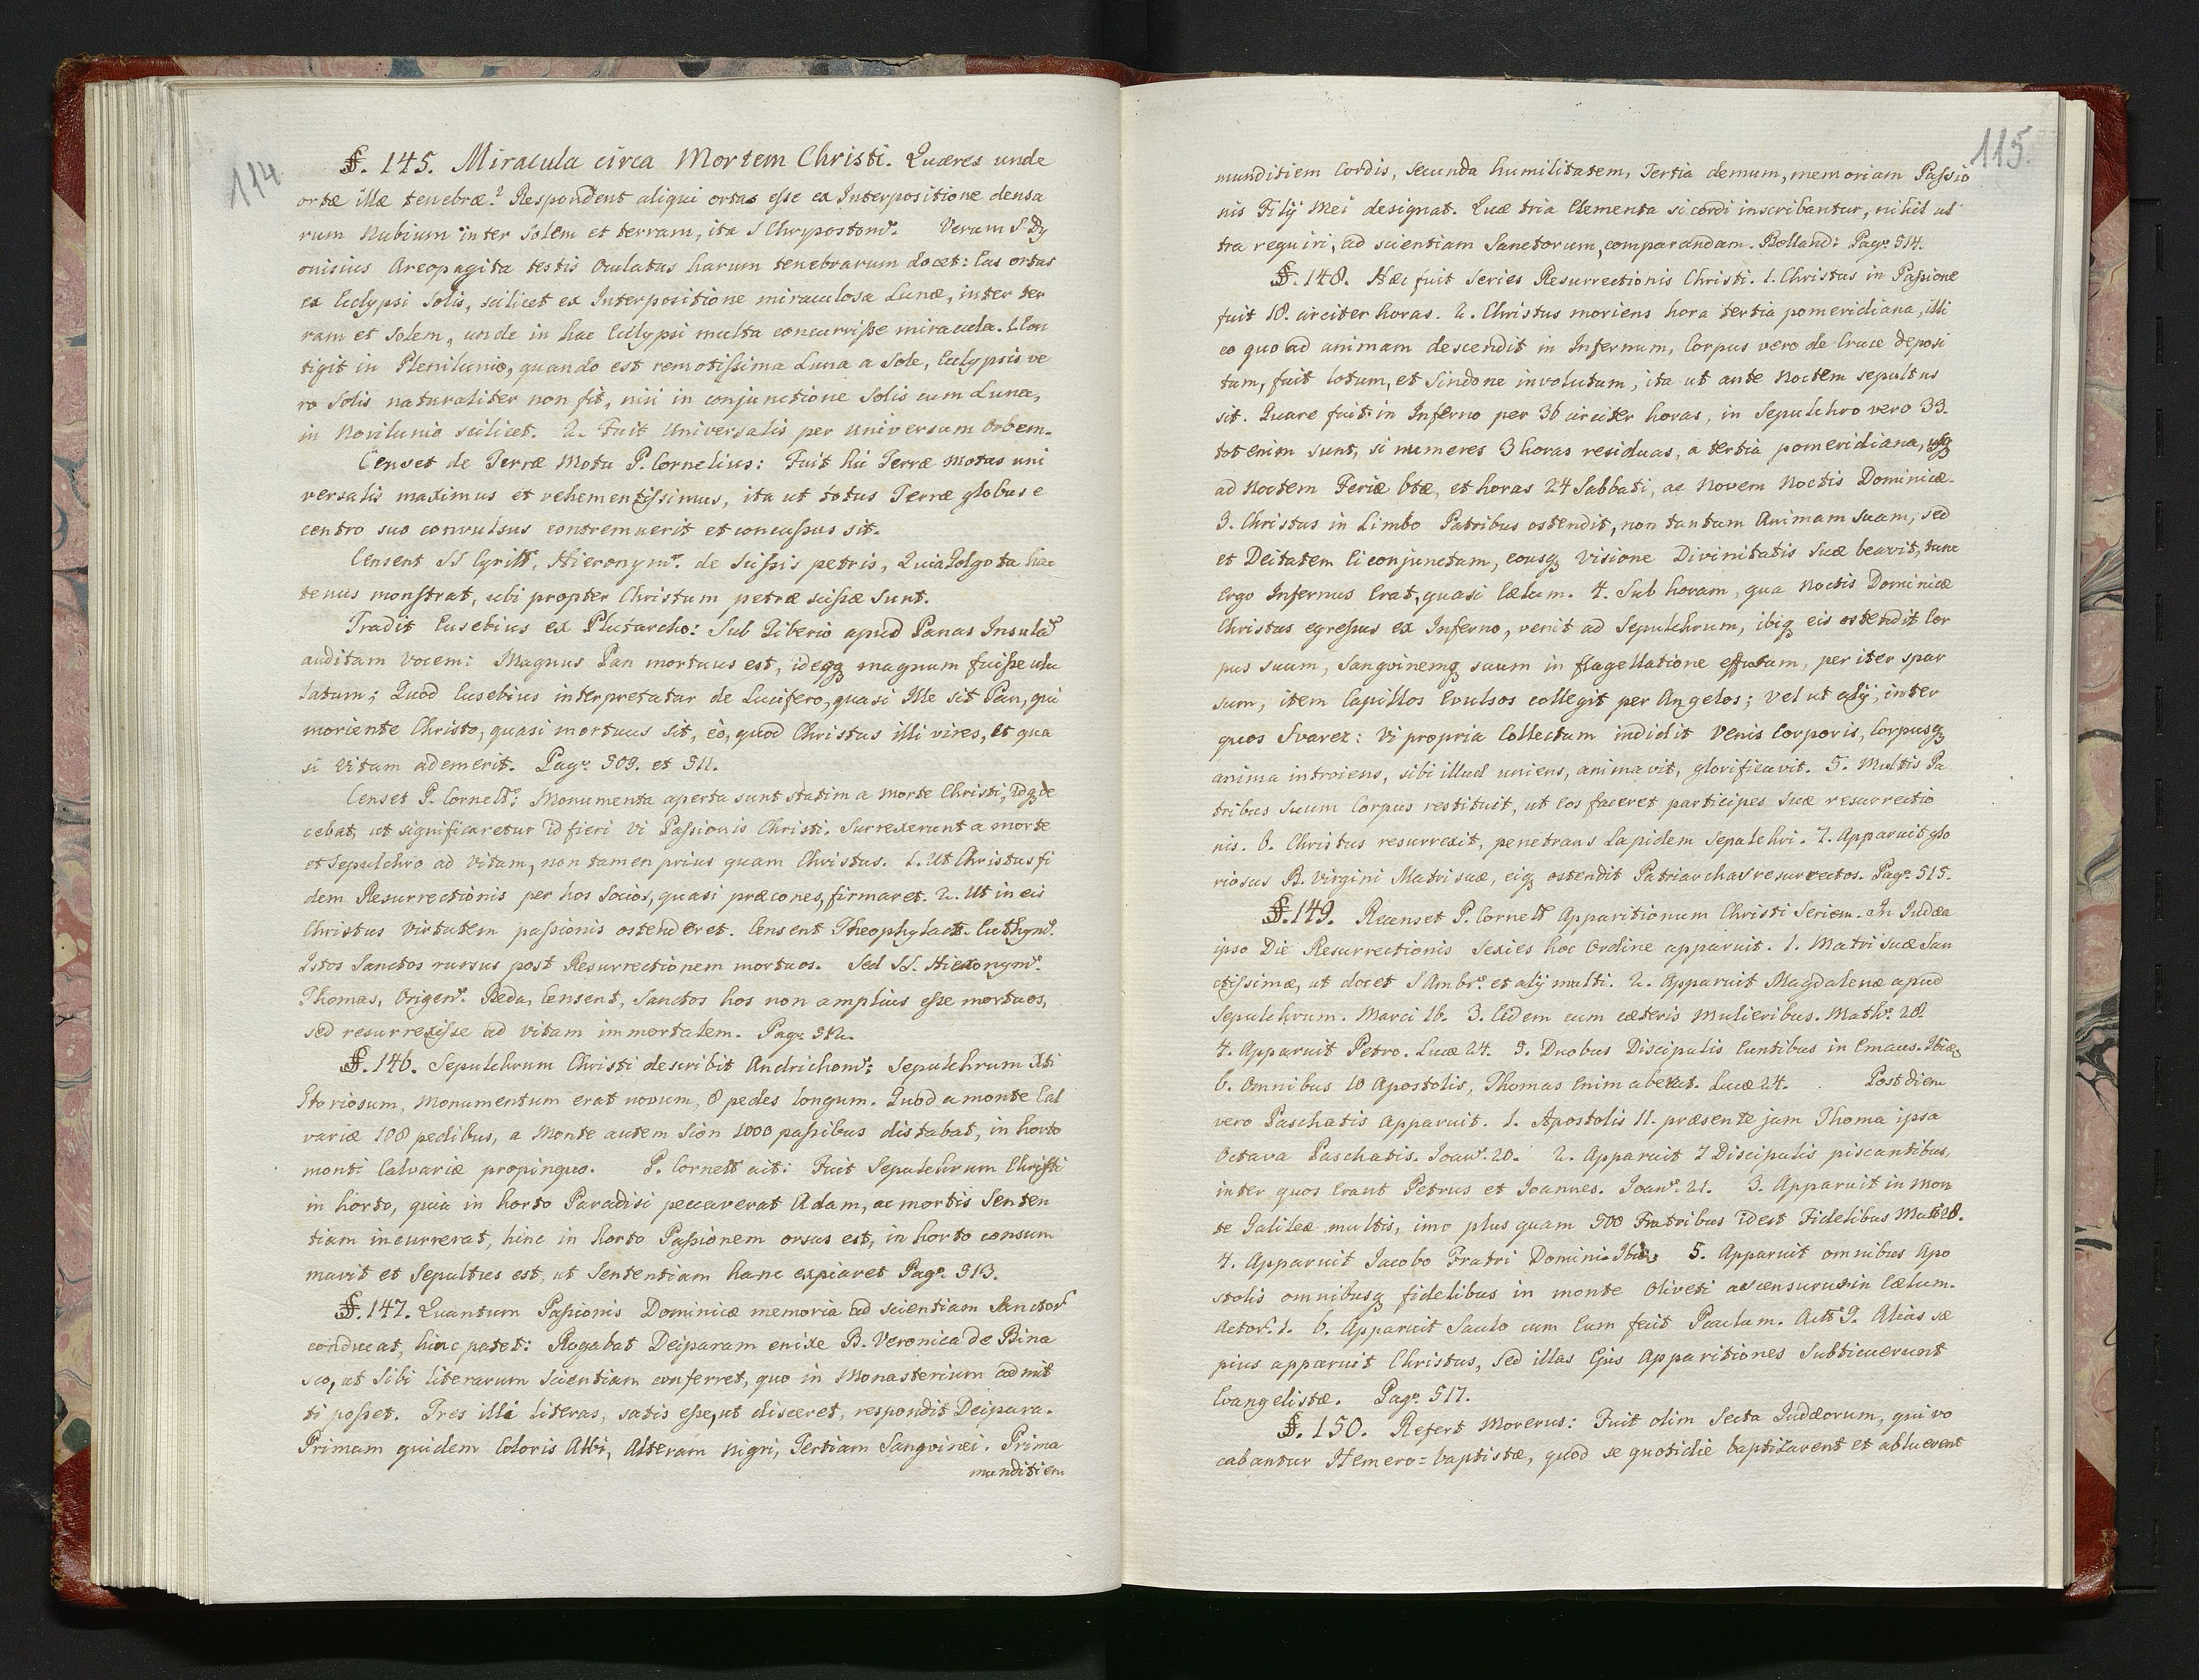 114.
§. 145. Miracula circa Mortem Christi. Quæres unde
ortæ illæ tenebræ? Respondent aliqui ortas esse ex Interpositione densa
rum Nubium inter Solem et terram, ita S Chrysostom9. Verum S Dy
onisius Areopagita testis Oculatus harum tenebrarum docet: Eas ortas
ex Eclypsi Solis, scilicet ex Interpositione miraculosa Lunæ, inter ter
ram et Solem, unde in hac Eclypsi multa concurrisse miracula. 1. Con
tigit in Plenilunio, quando est remotissima Luna a Sole, Eclypsis ve
ro Solis naturaliter non fit, nisi in conjunctione Solis cum Luna,
in Novilunio scilicet. 2. Fuit Universalis per Universum Orbem.
Censet de Terræ Motu P. Cornelius: Fuit hic Terræ Motus uni
versalis maximus et vehementissimus, ita ut totus Terræ globus e
centro suo convulsus contremuerit et concussus sit.
Censent SS Cyrill, Hieronym9. de Scissis petris, Quia Golgota hac
tenus monstrat, ubi propter Christum petræ scissæ Sunt.
Tradit Eusebius ex Plutarcho: Sub Tiberio apud Panas Insula
auditam Vocem: Magnus Pan mortuus est, ideqq magnum fuisse ulu
latum; Quod Eusebius interpretatur de Lucifero, quasi Ille sit Pan, qui
moriente Christo, quasi mortuus sit, eò, quod Christus illi vires, et qua
si Vitam ademerit. Pag. 509. et 511.
Censet P. Cornell: Monumenta aperta sunt statim a Morte Christi, idq de
cebat, ut significaretur id fieri Vi Passionis Christi. Surrexerunt a morte
et Sepulchro ad Vitam, non tamen prius quam Christus. 1. Ut Christus fi
dem Resurrectionis per hos Socios, quasi præcones, firmaret. 2. Ut in eis
Christus Virtutem passionis ostenderet. Censent Theophylact. Euthym9.
Istos Sanctos rursus post Resurrectionem mortuos. Sed SS. Hieronym9.
Thomas, Origen9. Beda, Censent, Sanctos hos non amplius esse mortuos,
sed resurrexisse ad Vitam immortalem. Pag. 512.
§. 146. Sepulchrum Christi describit Andrichom9: Sepulchrum Xti
Gloriosum, Monumentum erat novum, 8 pedes longum. Quod a monte Cal
variæ 108 pedibus, a Monte autem Sion 1000 passibus distabat, in horto
monti Calvariæ propinquo. P. Cornell ait: Fuit Sepulchrum Christi
in horto, quia in horto Paradisi peccaverat Adam, ac mortis Senten
tiam incurrerat, hinc in horto Passionem orsus est, in horto consum
mavit et Sepultus est, ut Sententiam hanc expiaret Pag. 513.
§. 147. Quantum Passionis Dominicæ memoria ad scientiam Sanctor
conducat, hinc patet: Rogabat Deiparam enixe B. Veronica de Bina
sco, ut Sibi literarum scientiam conferret, quo in Monasterium admit
ti posset. Tres illi literas, satis esse, ut disceret, respondit Deipara.
Primam quidem Coloris Albi, Alteram Nigri, Tertiam Sangvinei. Prima
munditiem
115.
munditiem Cordis, Secunda humilitatem, Tertia demum, memoriam Passio
nis Filij Mei designat. Quæ tria Elementa si cordi inscribantur, nihil ul
tra requiri, ad scientiam Sanctorum, comparandam. Bolland: Pag. 514.
§. 148. Hæc fuit Series Resurrectionis Christi. 1. Christus in Passione
fuit 18. circiter horas. 2. Christus moriens hora tertia pomeridiana, illi
co quo ad animam descendit in Infernum, Corpus vero de Cruce deposi
tum, fuit lotum, et Sindone involutum, ita ut ante Noctem sepultus
sit. Quare fuit in Inferno per 36 circiter horas, in Sepulchro vero 33.
tot enim sunt, si numeres 3 horas residuas, a tertia pomeridiana, usq
ad Noctem Feriæ 6tæ, et horas 24 Sabbati, ac Novem Noctis Dominicæ.
3. Christus in Limbo Patribus ostendit, non tantum Animam suam, sed
et Deitatem Ei conjunctam, eousq Visione Divinitatis Suæ beavit, tunc
Ergo Infernus Erat, quasi Cælum. 4. Sub horam, qua Noctis Dominicæ
Christus egressus ex Inferno, venit ad Sepulchrum, ibiq eis ostendit Cor
pus suum, Sangvinemq suum in flagellatione effusum, per iter spar
sum, item Capillos Evulsos collegit per Angelos; vel ut alij, inter
quos Svarez: Vi propria Collectum indidit Venis Corporis, Corpusq
anima introiens, sibi illud uniens, animavit, glorificavit. 5. Multis Pa
tribus Suum Corpus restituit, ut Eos faceret participes Suæ resurrectio
nis. 6. Christus resurrexit, penetrans Lapidem Sepulchri. 7. Apparuit glo
riosus B. Virgini Matri suæ, eiq ostendit Patriarchas resurrectos. Pag. 515.
§. 149. Recenset P. Cornell Apparitionum Christi Seriem. In Judæa
ipso Die Resurrectionis Sexies hoc Ordine apparuit. 1. Matri suæ San
ctissimæ, ut docet S Ambr. et alij multi. 2. Apparuit Magdalenæ apud
Sepulchrum. Marci 16. 3. Eidem cum cæteris Mulieribus. Math. 28.
4. Apparuit Petro. Lucæ 24. 5. Duobus Discipulis Euntibus in Emaus. Ibid
6. Omnibus 10 Apostolis, Thomas Enim aberat. Lucæ 24. Post diem
vero Paschatis Apparuit. 1. Apostolis 11. præsente jam Thoma ipsa
Octava Paschatis. Joan. 20. 2. Apparuit 7 Discipulis piscantibus,
inter quos Erant Petrus et Joannes. Joan. 21. 3. Apparuit in Mon
te Galileæ multis, imo plus quam 500 Fratribus id est Fidelibus Matt 28.
4. Apparuit Jacobo Fratri Domini. Ibid. 5. Apparuit omnibus Apo
stolis omnibusq fidelibus in monte Oliveti ascensurus in Cælum.
Actor. 1. 6. Apparuit Saulo cum Eum fecit Paulum. Act 9. Alias sæ
pius apparuit Christus, Sed illas Ejus Apparitiones Subticuerunt
Evangelistæ. Pag. 517.
§. 150. Refert Morerus: Fuit olim Secta Judæorum, qui vo
cabantur Hemero=baptistæ, quod se quotidie baptizarent et abluerent